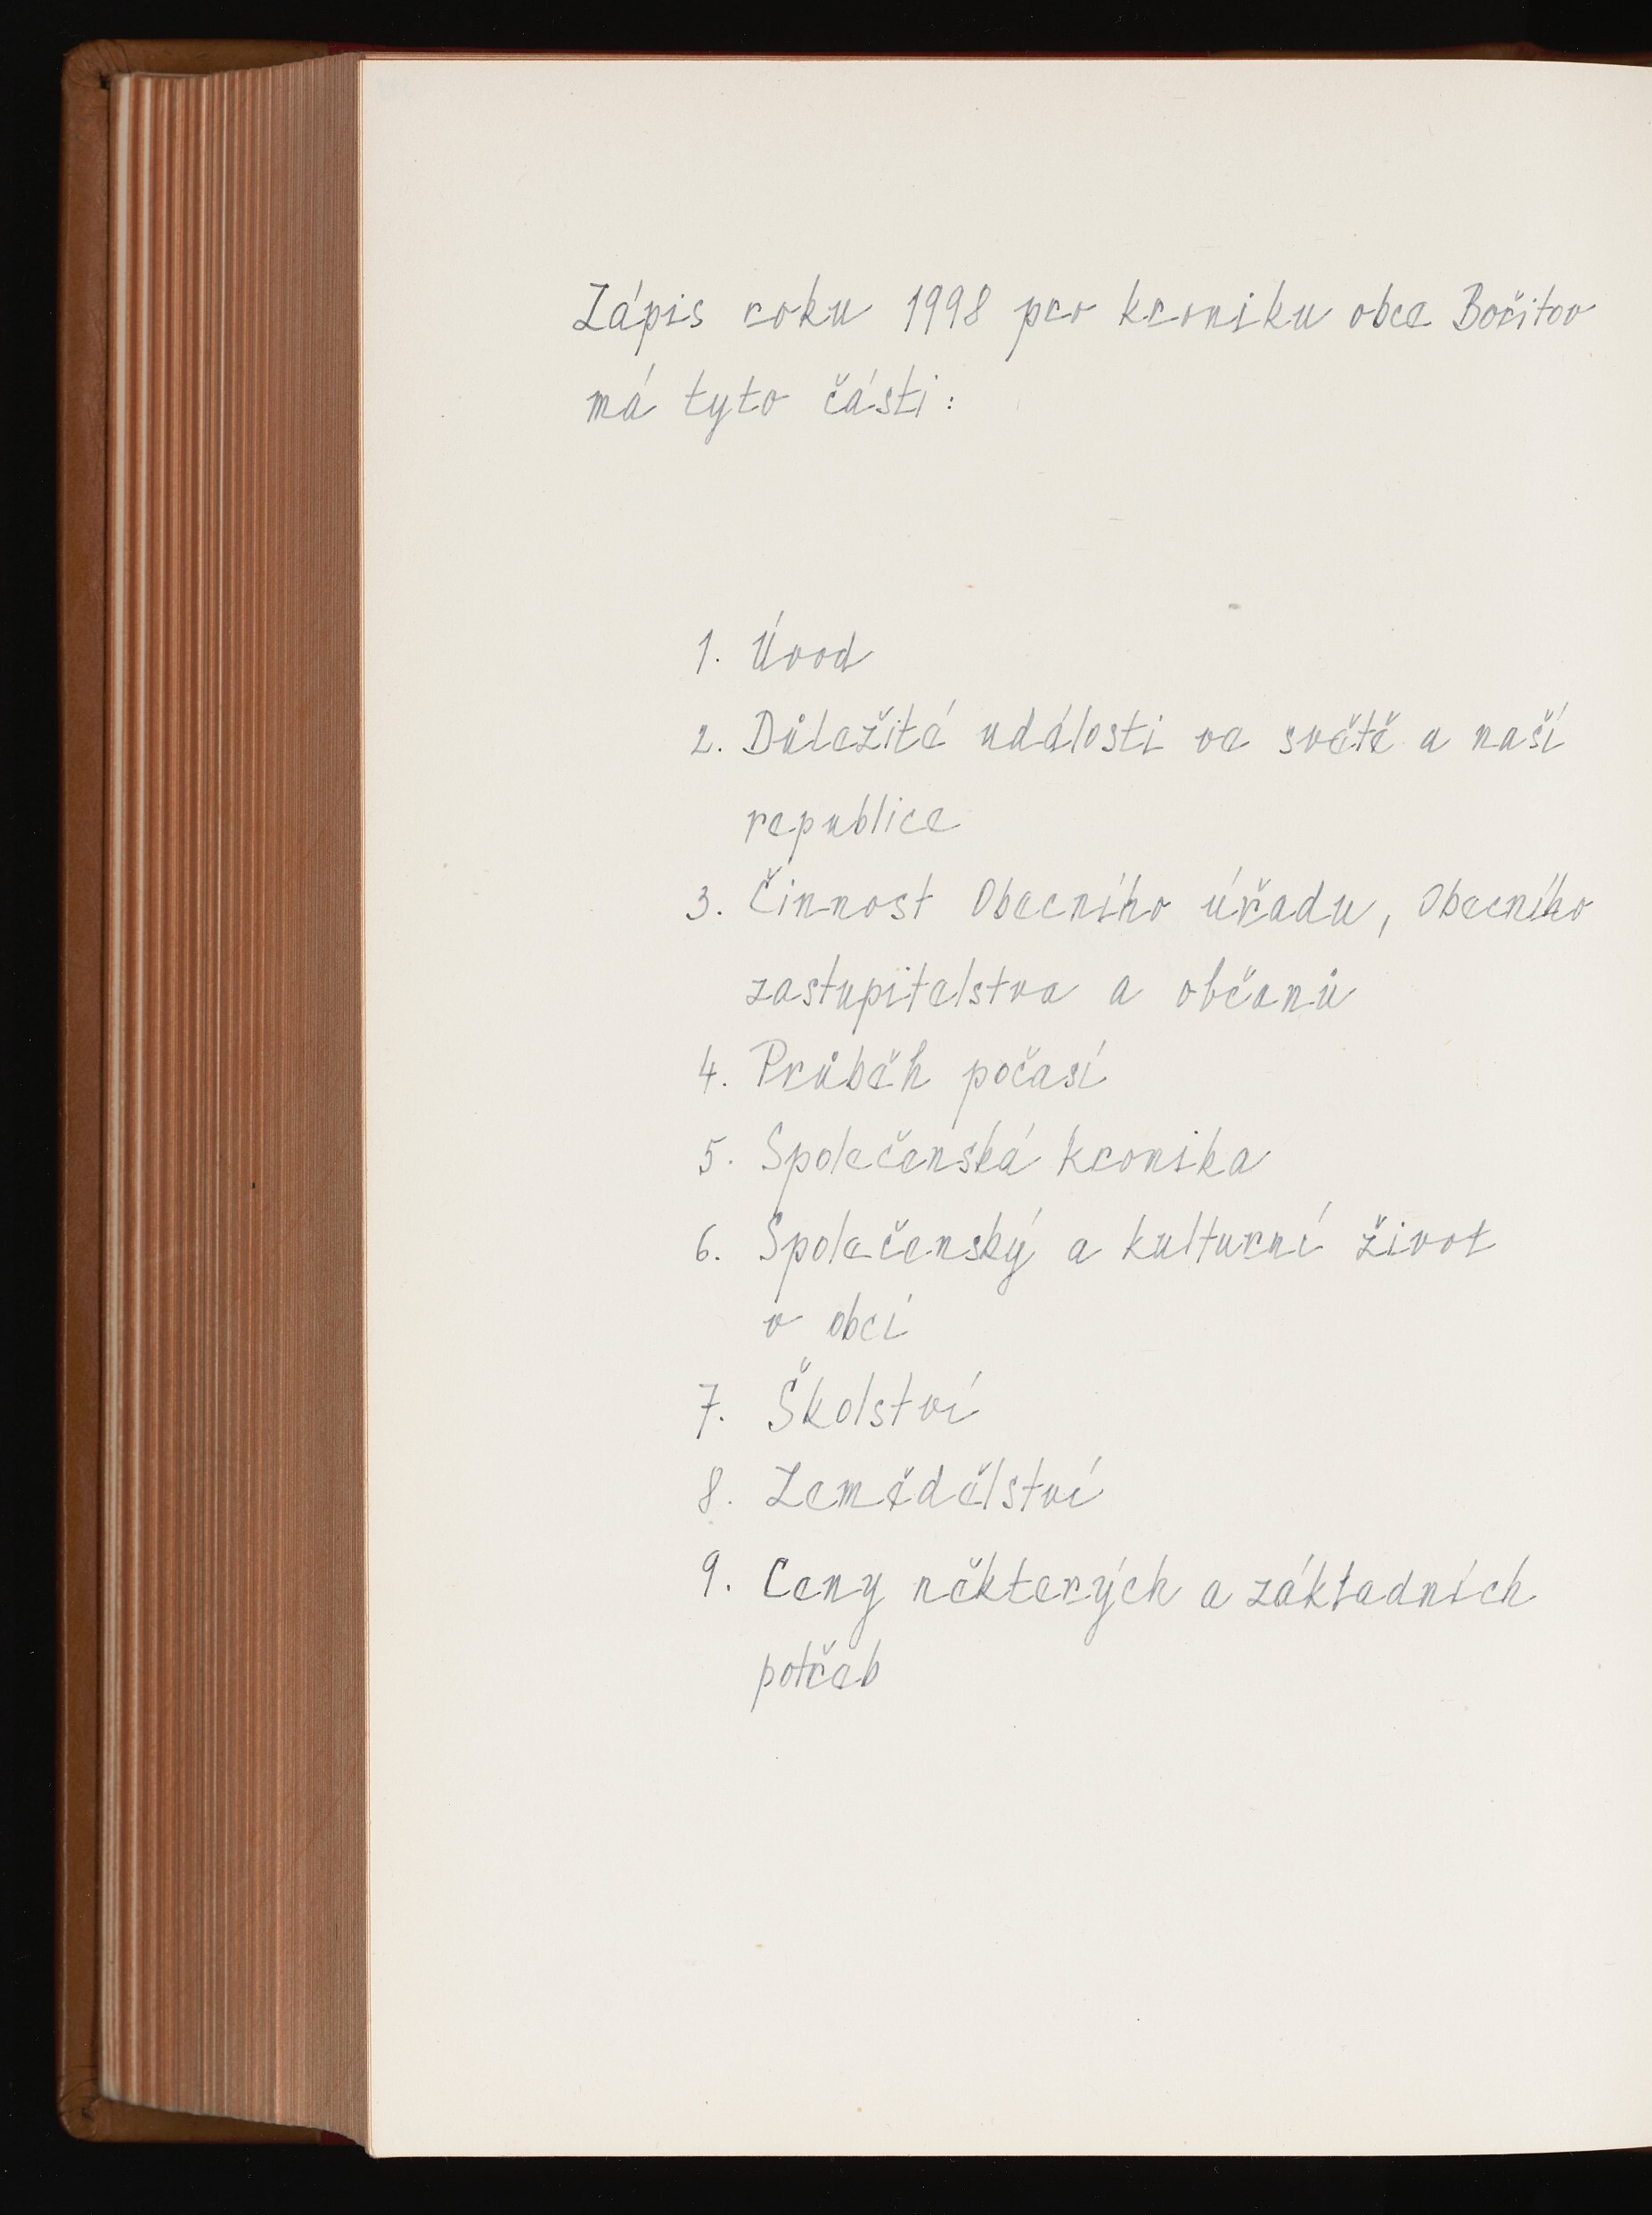 Zápis roku 1998 pro kroniku obce Bořitov
má tyto části:
1. Úvod
2. Důležité události ve světě a naší
republice
3. Činnost Obecního úřadu, Obecního
zastupitelstva a občanů
4. Průběh počasí
5. Společenská kronika
6. Společenský a kulturní život
v obci
7. Školství
8. Zemědělství
9. Ceny některých a základních
potřeb